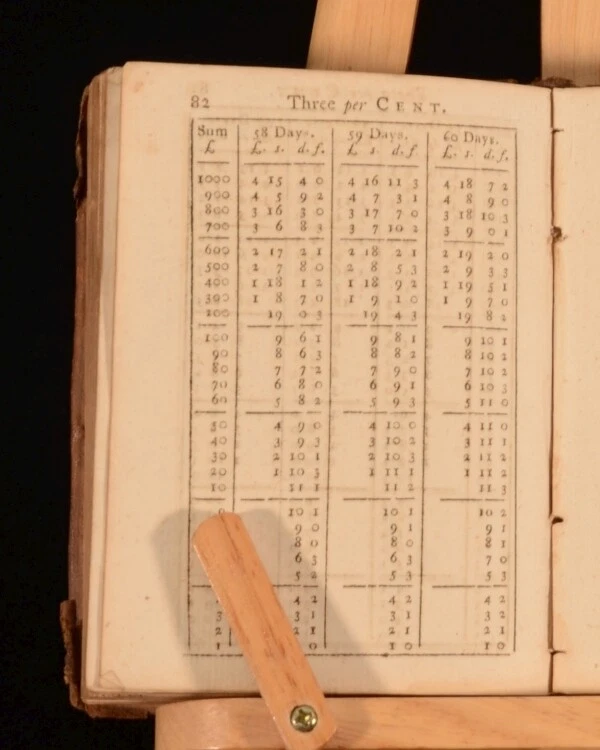 82 Three per CENT.
Sum 58 Days. 59 Days. 60 Days.
£ £. s. d. f. £. s. d. f. £. s. d. f.
1000 4 15 4 0 4 16 11 3 4 18 7 2
900 4 5 9 2 4 7 3 1 4 8 9 0
800 3 16 3 0 3 17 7 0 3 18 10 3
700 3 6 8 3 3 7 10 2 3 9 0 1
600 2 17 2 1 2 18 2 1 2 19 2 0
500 2 7 8 0 2 8 5 3 2 9 3 3
400 1 18 1 2 1 18 9 2 1 19 5 1
300 1 8 7 0 1 9 1 0 1 9 7 0
200 19 0 3 19 4 3 19 8 2
100 9 6 1 9 8 1 9 10 1
90 8 6 3 8 8 2 8 10 2
80 7 7 2 7 9 0 7 10 2
70 6 8 0 6 9 1 6 10 3
60 5 8 2 5 9 3 5 11 0
50 4 9 0 4 10 0 4 11 0
40 3 9 3 3 10 2 3 11 1
30 2 10 1 2 10 3 2 11 2
20 1 10 3 1 11 1 1 11 2
10 11 1 11 2 11 3
10 1 10 1 10 2
9 0 9 1 9 1
8 0 8 0 8 1
6 3 6 3 7 0
5 2 5 3 5 3
4 2 4 2 4 2
3 3 1 3 1 3 2
2 2 1 2 1 2 1
1 1 0 1 0 1 0